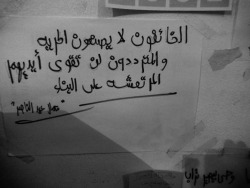 الخائفون لا يصنعون الحريه
والمترددون لن تقوى أيديهم
المرتعشه على البناء
"جمال عبد الناصر"